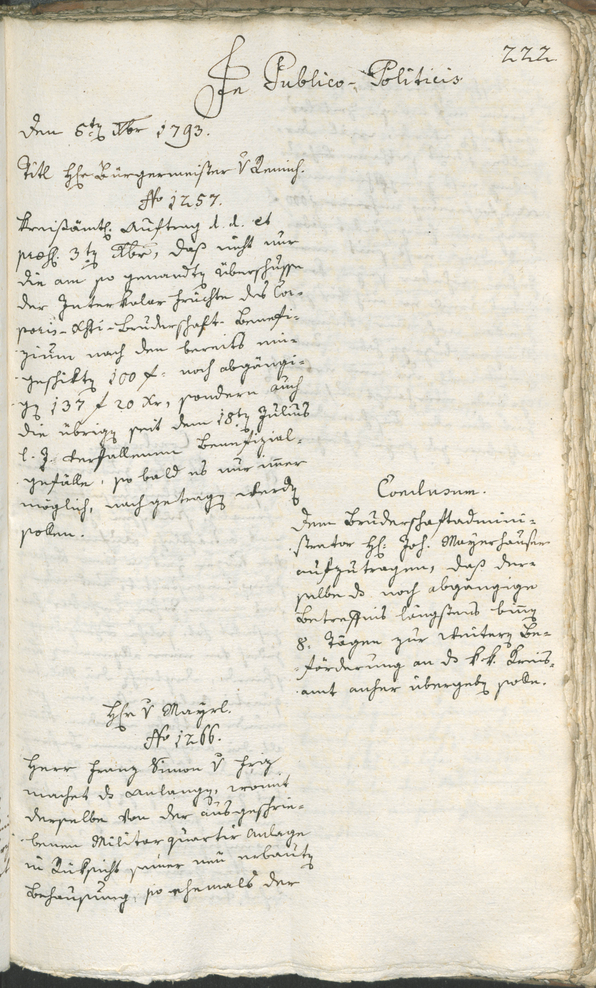 222
In Publico-Politicis
Den 6tn Xbr 1793.
Titl Hhr Bürgermeister v Remich.
No 1257.
Kreisämtl. Auftrag d. d. et
praes. 3tn Xbr, daß nicht nur
die am so genandtn Überschusse
der Interkalar Früchte des Cor-
poris-Xsti-Bruderschaft-Benefi-
zium nach den bereits ein-
geschiktn 100 f: noch abgängi-
gn 137 f 20 Xr, sondern auch
die übrign seit dem 18tn Julius
l. J. verfallenen Benefizial-
gefälle, so bald es nur imer
möglich, nachgetragn werdn
sollen.
Conclusum.
Dem Bruderschaftadmini-
strator Hh. Joh. Mayrhauser
aufzutragen, daß der-
selbe ds noch abgängige
Betreffnis längstens binn
8. Tägen zur weitern Be-
förderung an ds k. k. Kreis-
amt anher übergebn solle.
Hhr v Mayrl.
No 1266.
Herr Franz Simon v
machet ds Anlangn, womit
derselbe von der ausgeschrie-
benen Militarquartir Anlage
in Rüksicht seiner neu erbautn
Behausung, so ehemals der